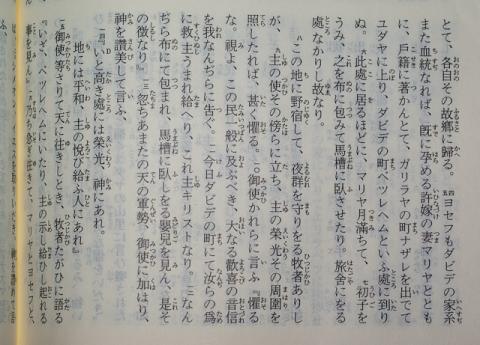 とて、各自その故郷に歸る。四ヨセフもダビデの家系
また血統なれば、既に孕める許嫁の妻マリヤととも
に、戸籍に著かんとて、ガリラヤの町ナザレを出でて
ユダヤに上り、ダビデの町ベツレヘムといふ處に到り
ぬ。六此處に居るほどに、マリヤ月滿ちて、七初子を
うみ、之を布に包みて馬槽に臥させたり。旅舍にをる
處なかりし故なり。
八この地に野宿して、夜群を守りをる牧者ありし
が、九主の使その傍らに立ち、主の榮光その周圍を
照したれば、甚く懼る。一〇御使かれらに言ふ『懼る
な。視よ、この民一般に及ぶべき、大なる歡喜の音信
を我なんぢらに告ぐ。一一今日ダビデの町にて汝らの爲
に救主うまれ給へり、これ主キリストなり。一二なん
ぢら布にて包まれ、馬槽に臥しをる嬰兒を見ん、是そ
の徴なり』一三忽ちあまたの天の軍勢、御使に加はり、
神を讃美して言ふ、
一四『いと高き處には榮光、神にあれ。
地には平和、主の悦び給ふ人にあれ』
一五御使等さりて天に往きしとき、牧者たがひに語る
『いざ、ベツレヘムにいたり、主の示し給ひし起れる
事を見ん』一六乃ち急ぎ往きて、マリヤとヨセフと、